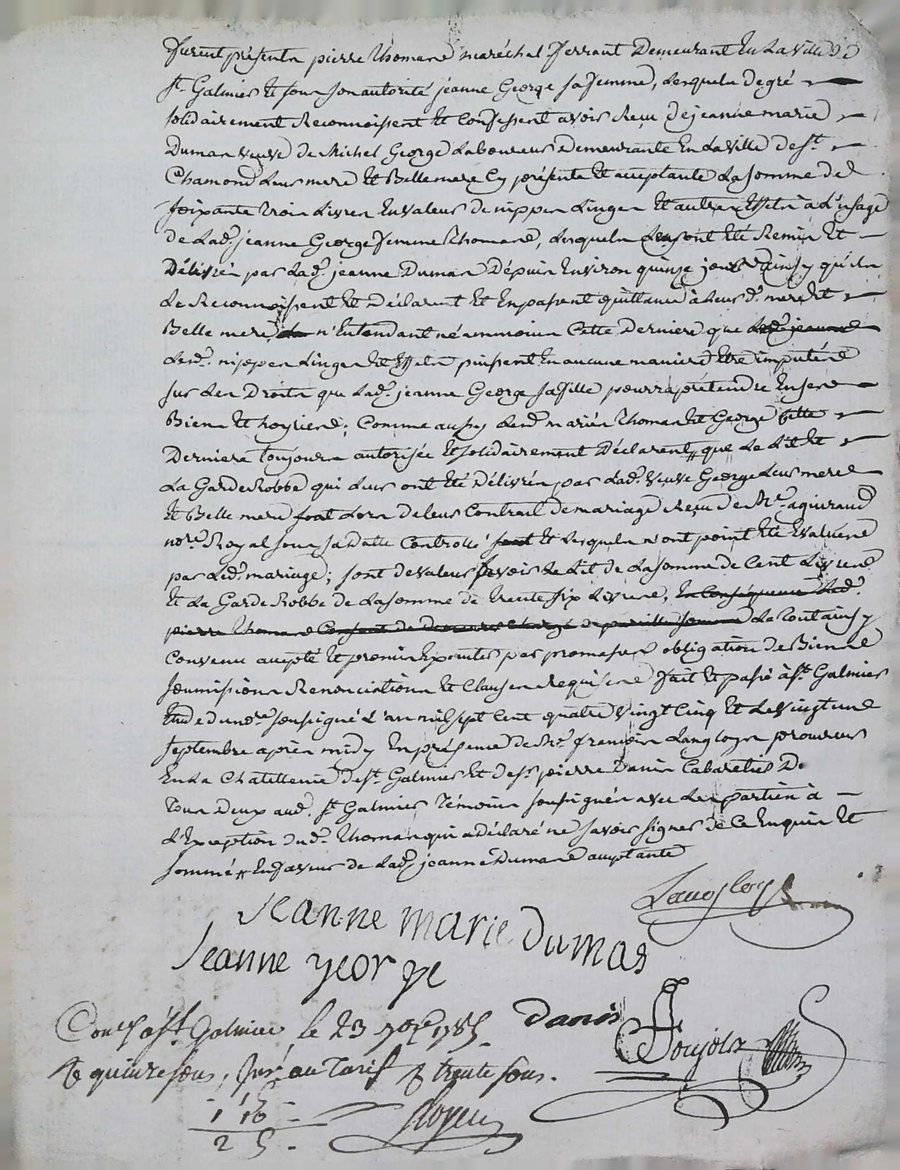 furent présents pierre thomas maréchal ferrant demeurant en la ville de
st. Galmier et sous son autorité jeanne George sa femme, lesquels de gré
solidairement Reconnoissent et Confessent avoir Reçu de jeanne marie
Dumas veuve de Michel George Laboureur demeurante En la ville de st.
Chamond Leur mere et Belle mere Cy présente et acceptante La somme de
soixante trois Livres En valeur de nippes Linges et autres Effets à L'usage
de Lad. jeanne George femme thomas, Lesquels Leur sont été Remis et
Délivrés par Lad. jeanne Dumas Dépuis Environ quinze jours ainsy qu'ils
Le Reconnoissent et Déclarent et En passent quittance à Leurd. mere et
Belle mere n'Entendant néammoins Cette Derniere que Lad. jeanne
Lesd. nipes Linges et Effets puissent En aucune maniere être imputés
sur Les Droits que Lad. jeanne George sa fille pourra prétendre En ses
Biens et hoyries; Comme aussy Lesd. mariés thomas et George Cette
Derniere toujours autorisée Et solidairement Déclarent que Le Lit et
La GardeRobbe qui Leur ont été Délivrés par Lad. veuve George Leur mere
et Belle mere Lors de leur Contrat de mariage Reçu de Me. aguiraud
nore. Royal sous sa Datte Controllé et Lesquels n'ont point été Evalués
par Led. mariage; sont de valeur savoir Le Lit de La somme de Cent Livres
et La GardeRobbe de La somme de trente six Livres, En Conséquence Led.
pierre thomas Consent de demeurer Chargé de pareille somme La tout ainsy
Convenu accepté et promis Exécuter par promesses obligation de Biens
soumissions Renonciations et Clauses Requises fait et passé à st. Galmier
Etude du nore. soussigné L'an mil sept Cent quatre vingt Cinq et Le vingt un
septembre après midy En présence de Me. françois Langlois procureur
En La Chatellenie de st. Galmier et de sr. pierre Danis Cabaretier De
tous Deux aud. st. Galmier témoins soussignés avec Les parties à
L'Exception dud. thomas qui a déclaré ne savoir signer de Ce Enquis et
sommé # En faveur de Lad. jeanne Dumas acceptante
Langlois
Jeanne marie Dumas
Jeanne george
danis
Conlé. à st. Galmier le 23 7bre 1785.
R quinze sous, sur au Tarif R trente sous.
1 10
2 5